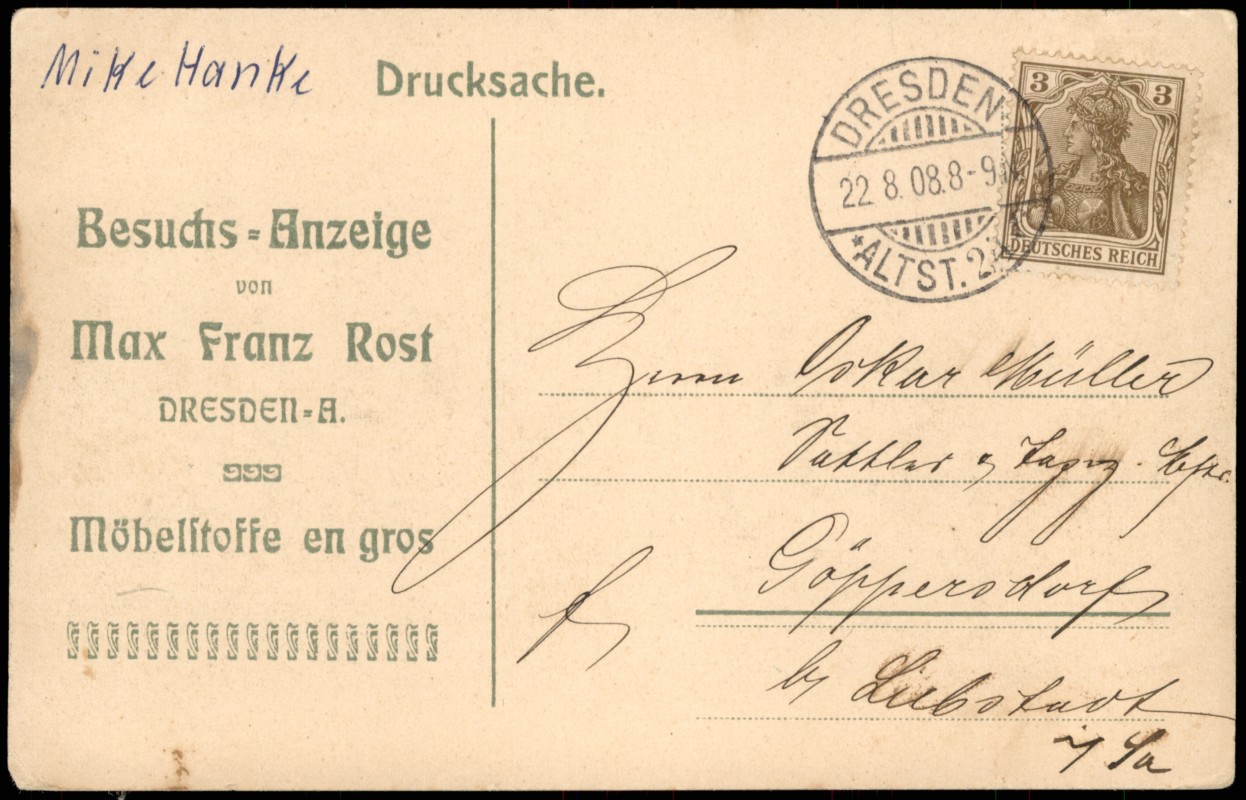 Mike Hanke
Drucksache.
Besuchs=Anzeige
von
Max Franz Rost
DRESDEN=A.
Möbelstoffe en gros
DRESDEN
22. 8. 08. 8-9
*ALTST. 2
3 3
DEUTSCHES REICH
Herrn Oskar Müller
Sattler u
Göppersdorf
b/ Liebstadt
i/ Sa